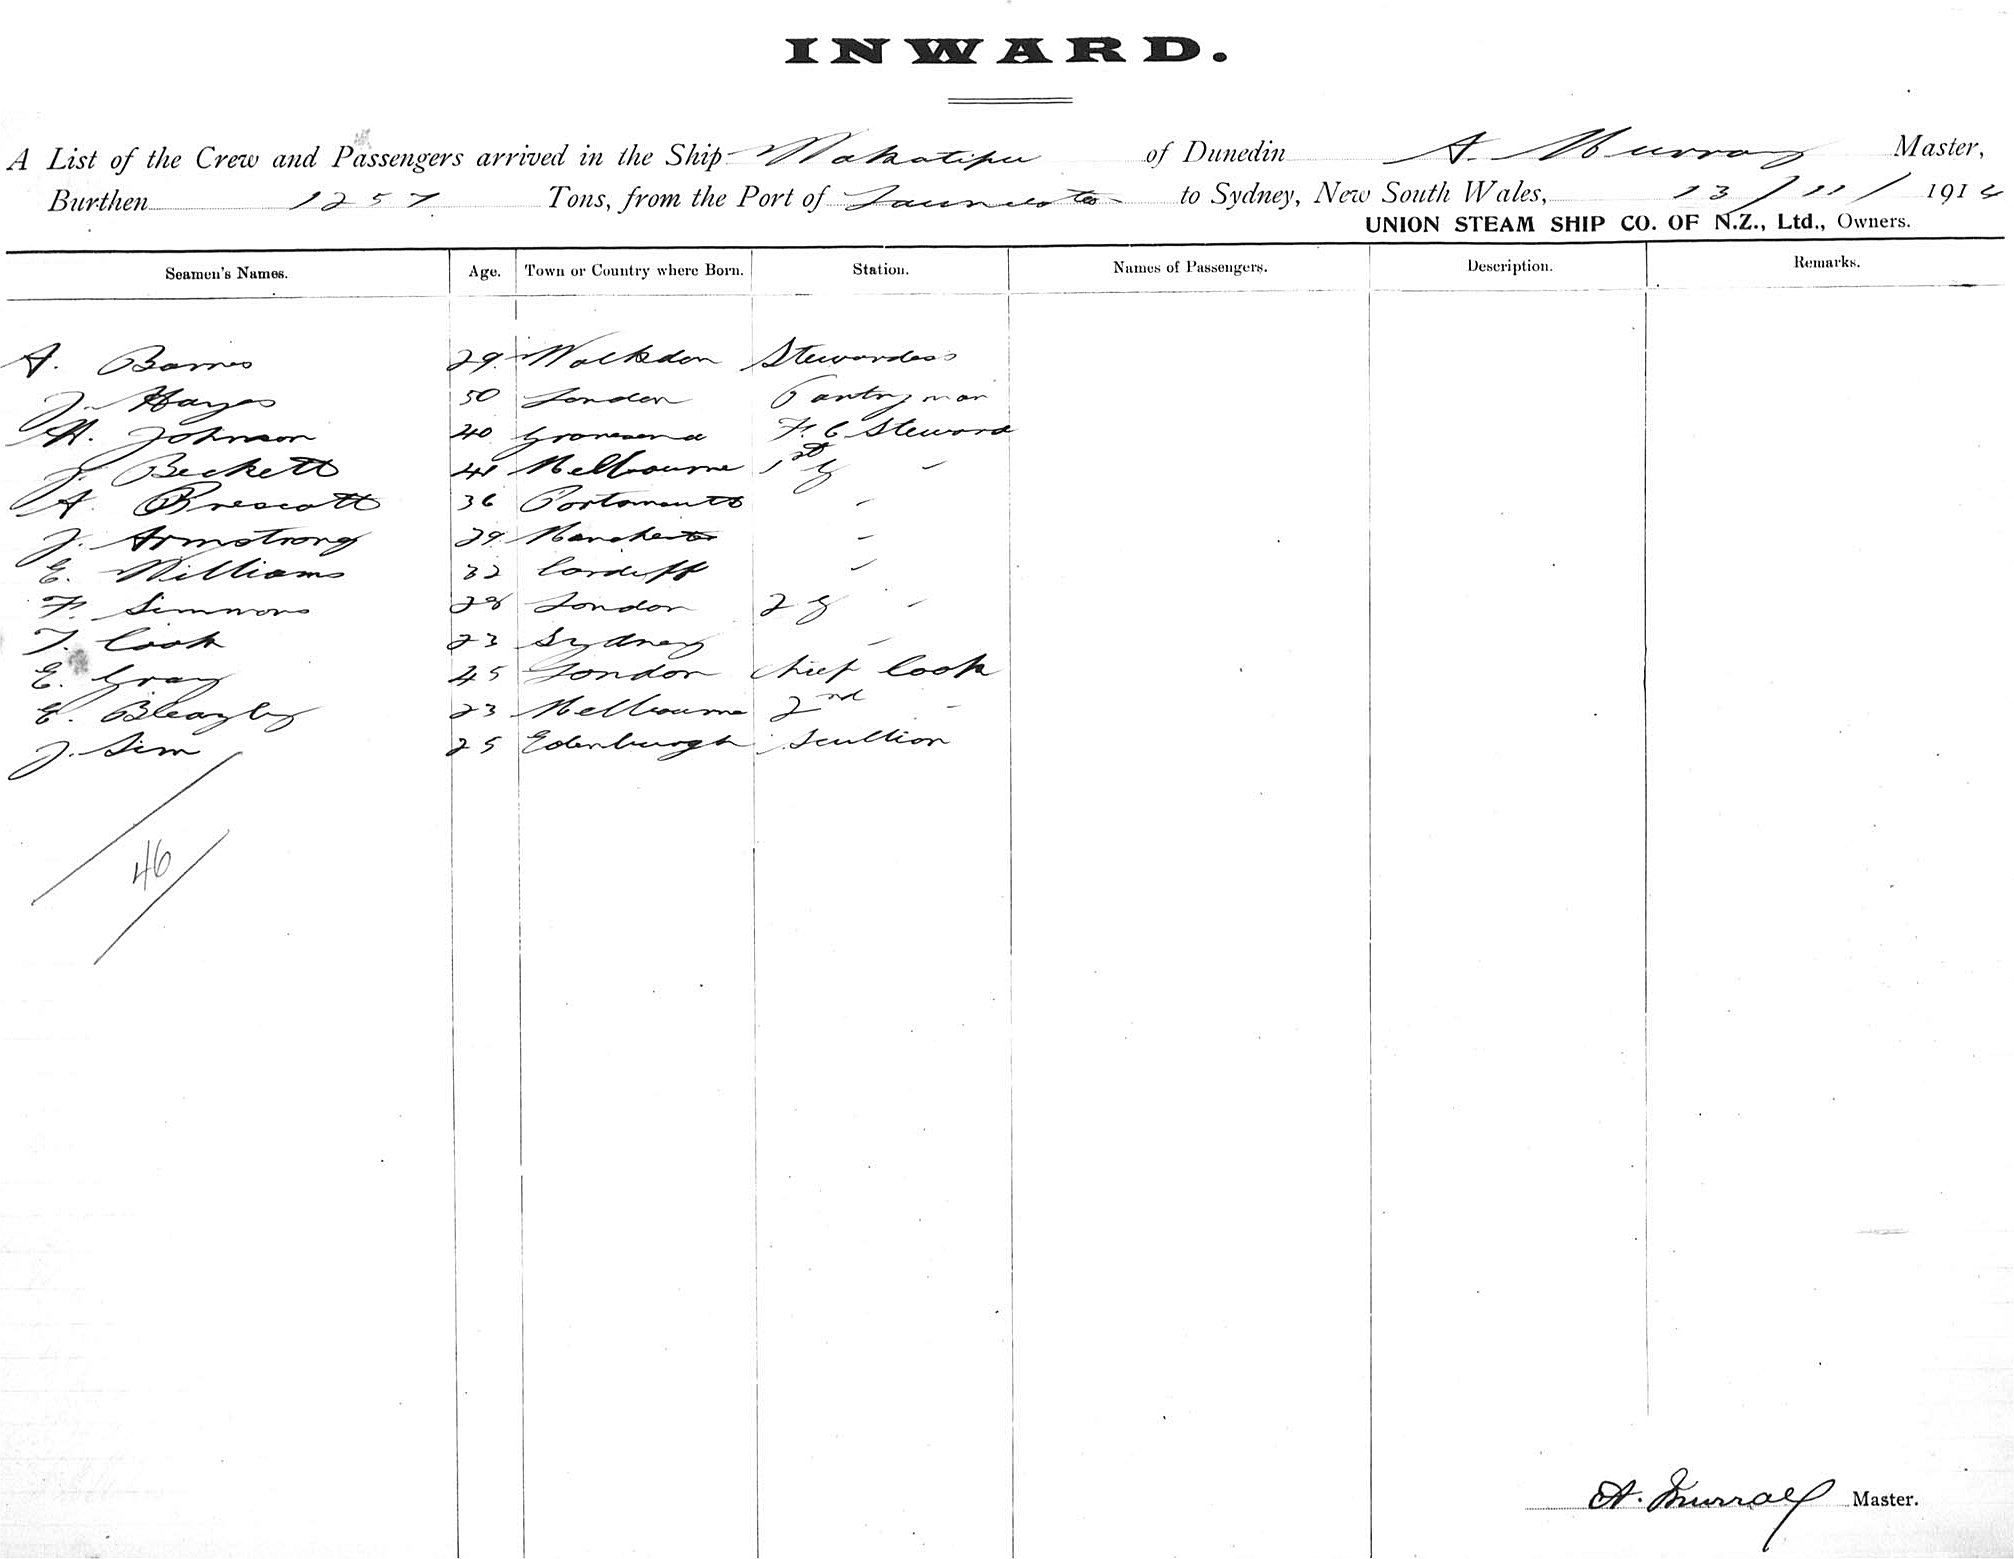 INWARD.
A List of the Crew and Passengers arrived in the Ship Wakatipu of Dunedin A. Murray Master,
Burthen 1257 Tons, from the Port of Launceston to Sydney, New South Wales, 13/11/1914
UNION STEAM SHIP CO. OF N.Z., Ltd., Owners.
Seamen's Names. Age. Town or Country where Born. Station. Names of Passengers. Description. Remarks.
A. Barnes 29 Stewardess
J. Hayes 50 London Pantryman
H. Johnson 40 Gravesend F. C Steward
J. Beckett 41 Melbourne 1st G "
A. Prescott 36 Portsmouth "
J. Armstrong 29 Manchester "
E. Williams 32 Cardiff "
F. Simmons 28 London 2 G "
T. Cook 23 Sydney "
E. Gray 45 London Chief Cook
E. Bleazby 23 Melbourne 2nd "
J. Sim 25 Edenburgh Scullion
46
A. Murray Master.